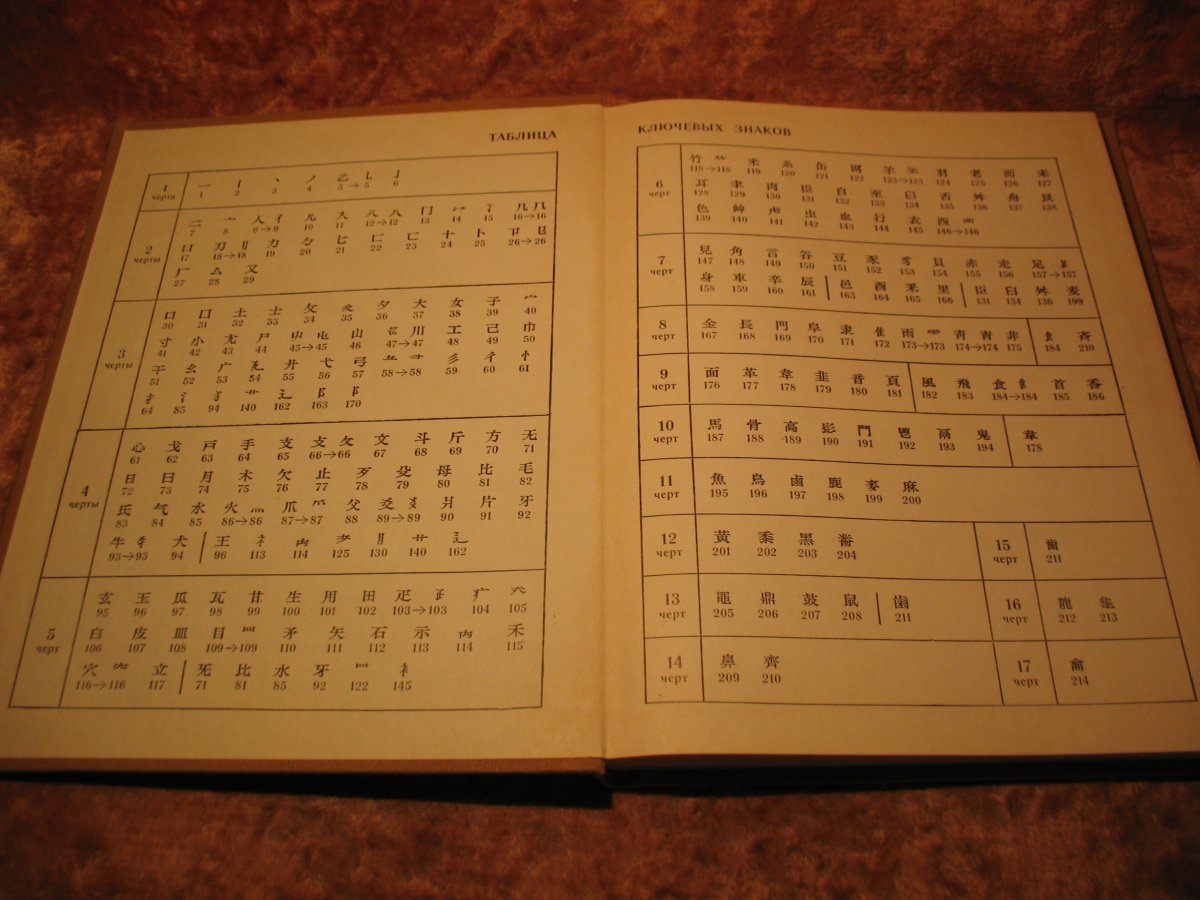 ТАБЛИЦА
1
черта
一 丨 丶 ノ 乙 乚 亅
1 2 3 4 5→5 6
2
черты
二 亠 人 亻 儿 入 八 八 冂 冖 冫 几 几
7 8 9→9 10 11 12→12 13 14 15 16→16
凵 刀 刂 力 勹 匕 匚 匸 十 卜 卩 㔾
17 18→18 19 20 21 22 23 24 25 26→26
厂 厶 又
27 28 29
3
черты
口 囗 土 士 夂 夊 夕 大 女 子 宀
30 31 32 33 34 35 36 37 38 39 40
寸 小 尢 尸 屮 山 巛 川 工 己 巾
41 42 43 44 45→45 46 47→47 48 49 50
干 幺 广 廴 廾 弋 弓 彡 彳 忄
51 52 53 54 55 56 57 58→58 59 60 61
扌 氵 犭 艹 辶 阝 阝
64 85 94 140 162 163 170
4
черты
心 戈 戸 手 支 攴 攵 文 斗 斤 方 无
61 62 63 64 65 66→66 67 68 69 70 71
日 曰 月 木 欠 止 歹 殳 母 比 毛
72 73 74 75 76 77 78 79 80 81 82
氏 气 水 火 灬 爪 爫 父 爻 爿 片 牙
83 84 85 86→86 87→87 88 89→89 90 91 92
牛 牜 犬 王 礻 禸 耂 月 艹 辶
93→93 94 96 113 114 125 130 140 162
5
черт
玄 玉 瓜 瓦 甘 生 用 田 疋 疒 癶
95 96 97 98 99 100 101 102 103→103 104 105
白 皮 皿 目 罒 矛 矢 石 示 禸 禾
106 107 108 109→109 110 111 112 113 114 115
穴 立 旡 比 氺 牙 罒 衤
116→116 117 71 81 85 92 122 145
КЛЮЧЕВЫХ ЗНАКОВ
6
черт
竹 米 糸 缶 网 羊 羽 老 而 耒
118→118 119 120 121 122 123→123 124 125 126 127
耳 聿 肉 臣 自 至 臼 舌 舛 舟 艮
128 129 130 131 132 133 134 135 136 137 138
色 艸 虍 虫 血 行 衣 西 覀
139 140 141 142 143 144 145 146→146
7
черт
見 角 言 谷 豆 豕 豸 貝 赤 走 足
147 148 149 150 151 152 153 154 155 156 157→157
身 車 辛 辰 邑 酉 釆 里 臣 臼 舛 麦
158 159 160 161 163 164 165 166 131 134 136 199
8
черт
金 長 門 阜 隶 隹 雨 靑 青 非 飠 斉
167 168 169 170 171 172 173→173 174→174 175 184 210
9
черт
面 革 韋 韭 音 頁 風 飛 食 飠 首 香
176 177 178 179 180 181 182 183 184→184 185 186
10
черт
馬 骨 高 髟 鬥 鬯 鬲 鬼 韋
187 188 189 190 191 192 193 194 178
11
черт
魚 鳥 鹵 鹿 麥 麻
195 196 197 198 199 200
12
черт
黄 黍 黑 黹
201 202 203 204
15
черт
齒
211
13
черт
黽 鼎 鼓 鼠 歯
205 206 207 208 211
16
черт
龍 龜
212 213
14
черт
鼻 齊
209 210
17
черт
龠
214